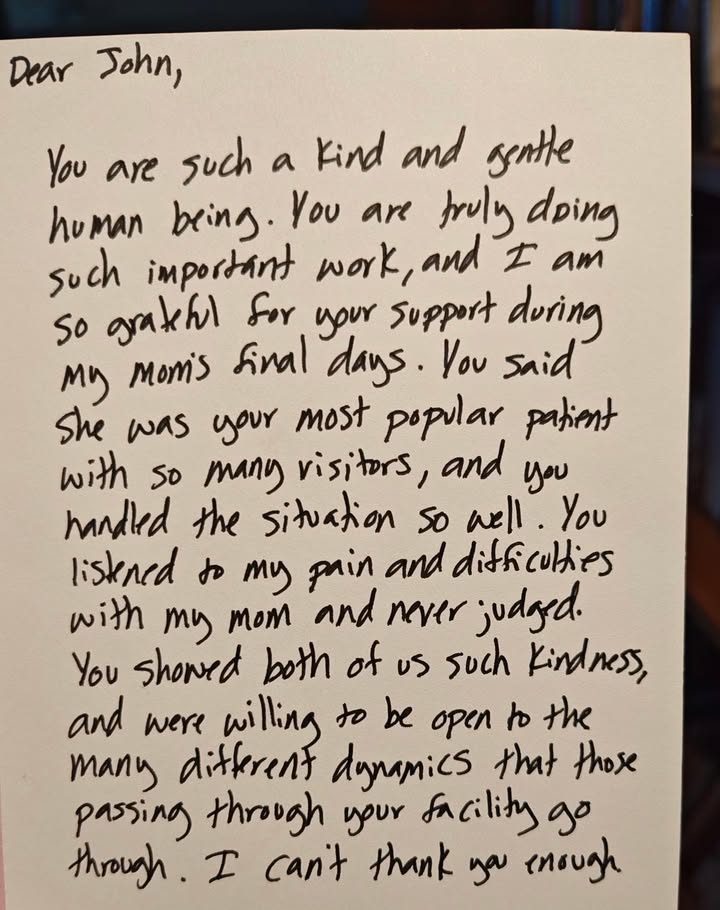 Dear John,
You are such a kind and gentle
human being. You are truly doing
such important work, and I am
so grateful for your support during
my mom's final days. You said
she was your most popular patient
with so many visitors, and you
handled the situation so well. You
listened to my pain and difficulties
with my mom and never judged.
You showed both of us such kindness,
and were willing to be open to the
many different dynamics that those
passing through your facility go
through. I can't thank you enough